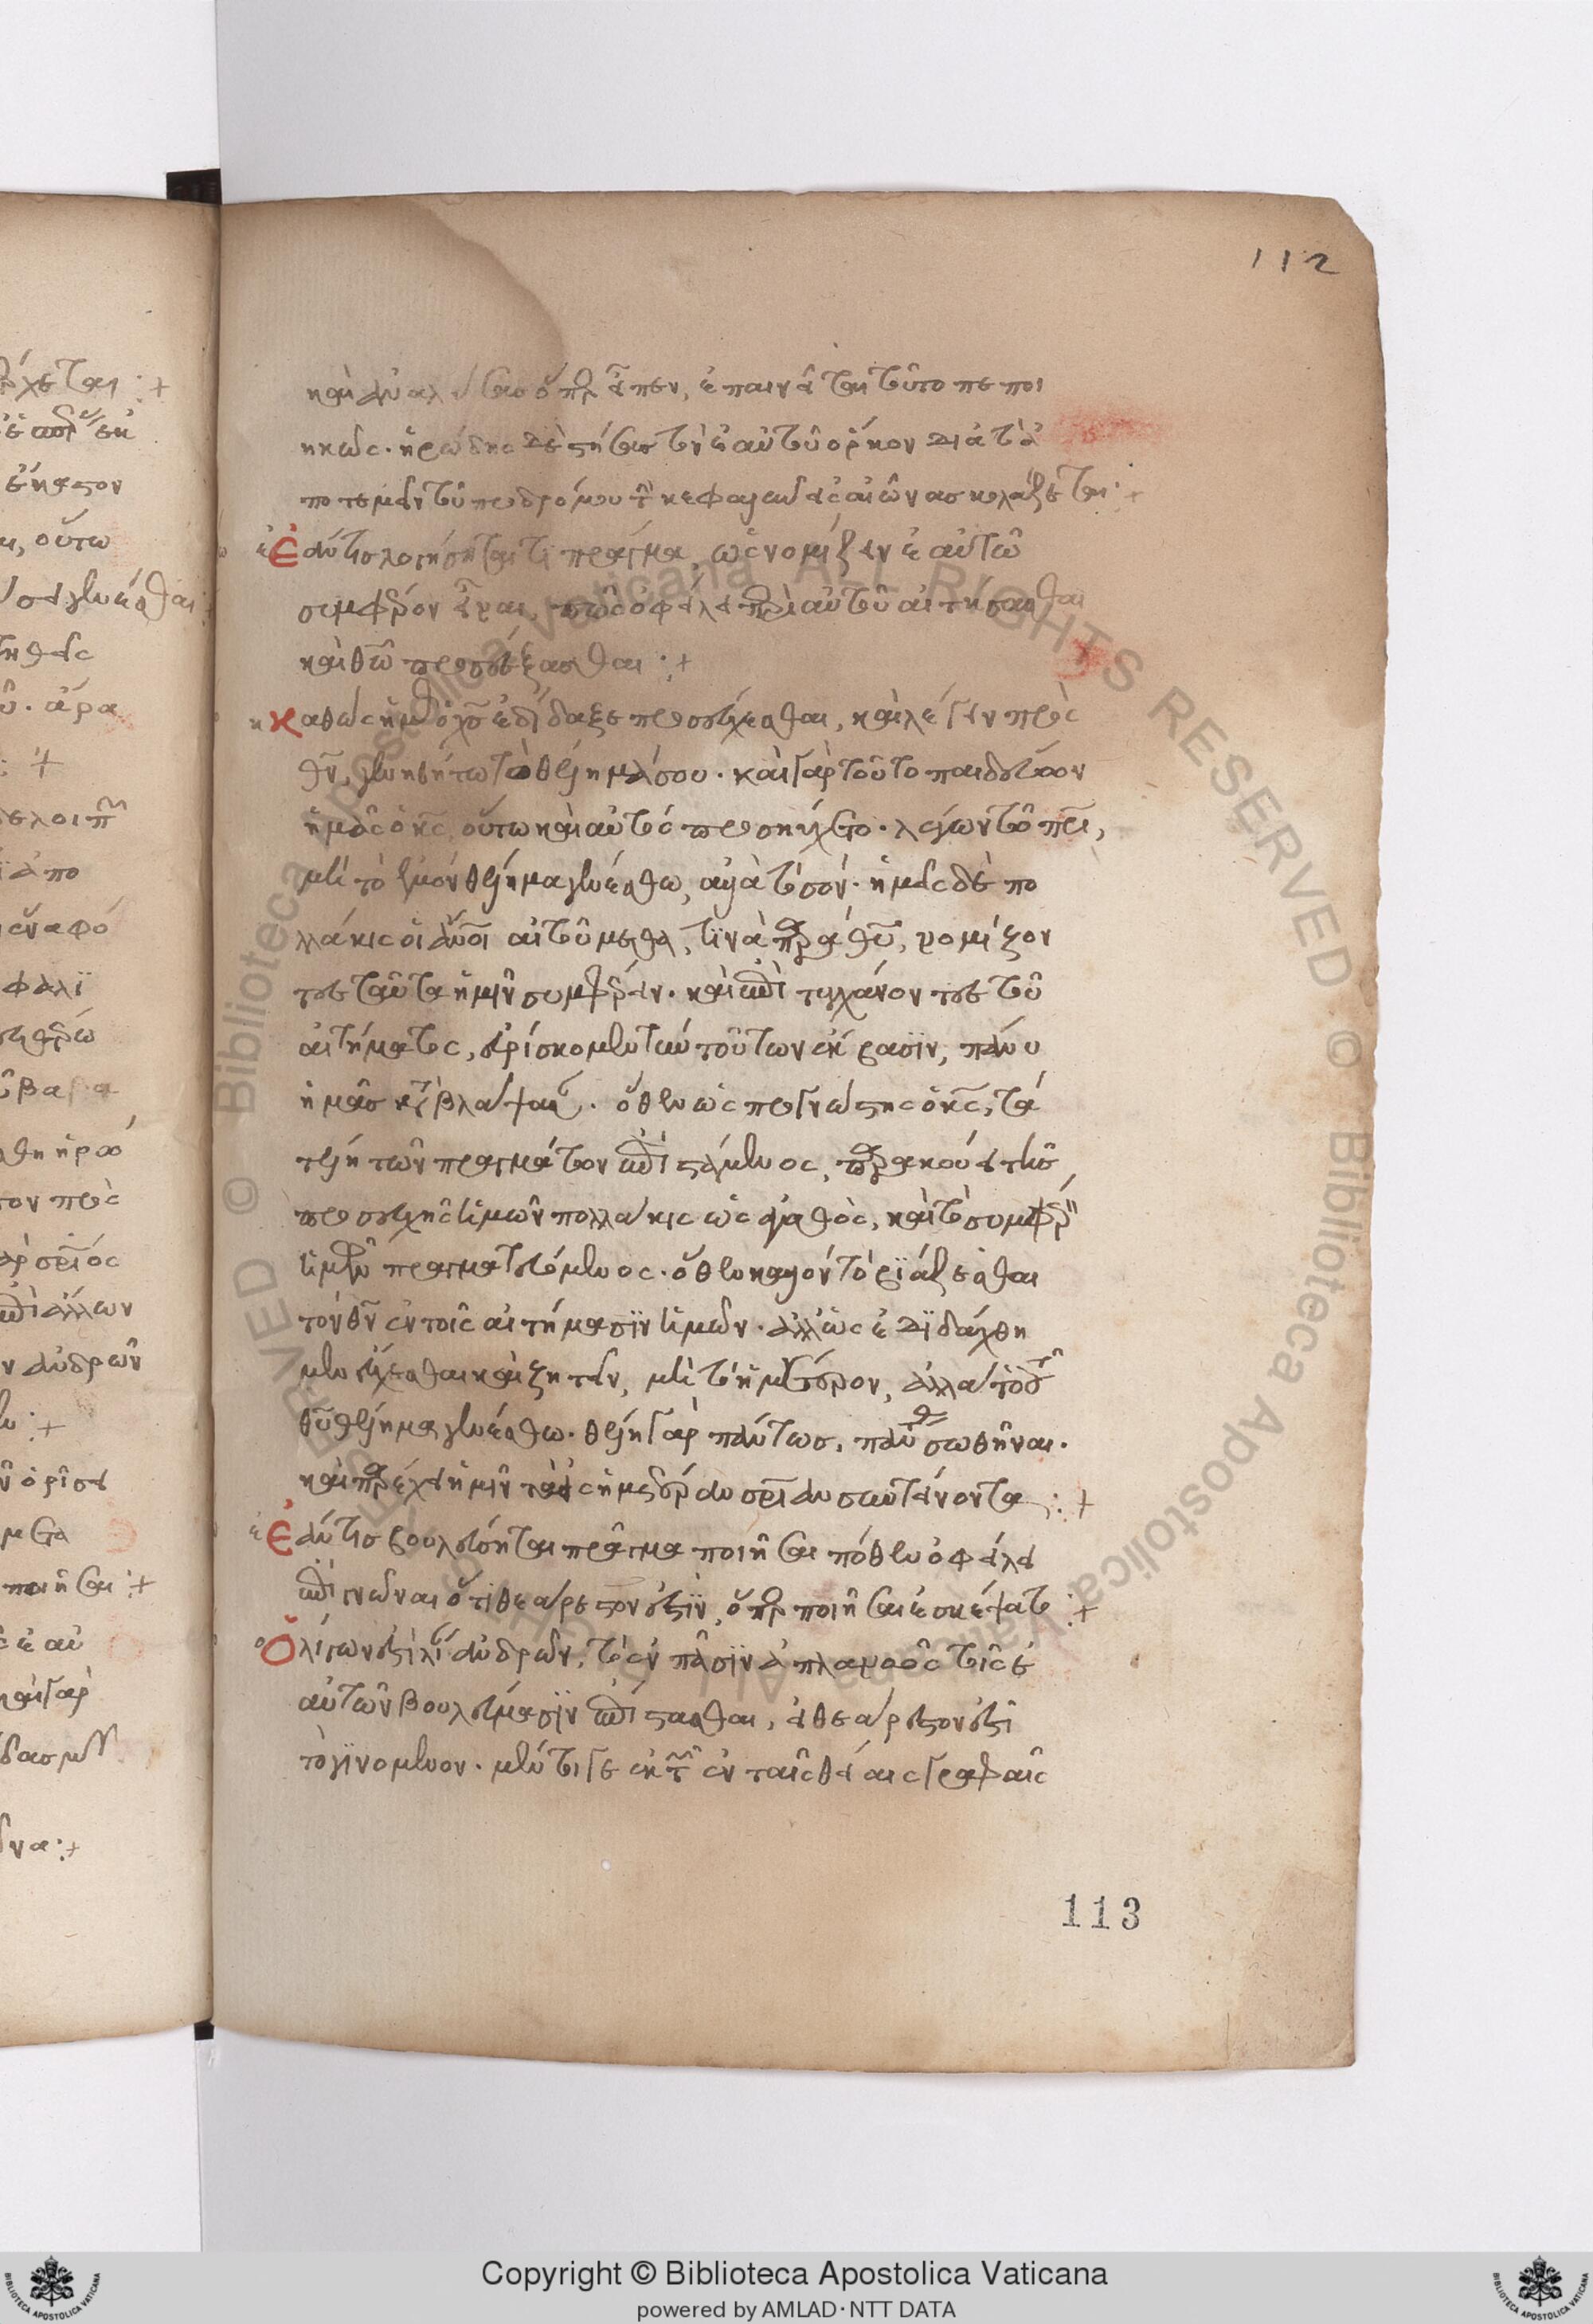 112
καὶ ἀναλύσας ὅπερ εἶπεν, ἐπαινεῖται τοῦτο πεποι
ηκώς. ἡρώδης δὲ στήσας τὸν ἑαυτοῦ ὅρκον διὰ τὸ ἀ
ποτεμεῖν τοῦ προδρόμου τὴν κεφαλὴν εἰς αἰῶνας κολάζεται :+
Ἐάν τις λογίσηται τί πρᾶγμα, ὡς νομίζειν ἑαυτῷ
συμφέρον εἶναι, πῶς ὀφείλει περὶ αὐτοῦ αἰτήσασθαι
καὶ θεῷ προσεύξασθαι :+
Καθὼς ἡμᾶς ὁ χς ἐδίδαξε προσεύχεσθαι, καὶ λέγειν πρὸς
θν, γενηθήτω τὸ θέλημά σου. καὶ γὰρ τοῦτο παιδεύων
ἡμᾶς ὁ κς, οὕτω καὶ αὐτὸς προσηύχετο. λέγων τῷ πρι,
μὴ τὸ ἐμὸν θέλημα γενέσθω, ἀλλὰ τὸ σόν. ἡμεῖς δὲ πο
λλάκις οἱ ἄνοι αἰτούμεθα, τινὰ παρὰ θυ, νομίζον
τες ταῦτα ἡμῖν συμφέρειν. καὶ ἐπιτυγχάνοντες τοῦ
αἰτήματος, εὑρίσκομεν τὴν τούτων ἔκβασιν, πάνυ
ἡμᾶς καταβλάψαν. ὅθεν ὡς προγνώστης ὁ κς, τὰ
τέλη τῶν πραγμάτων ἐπιστάμενος, παρακούει τῆς
προσευχῆς ἡμῶν πολλάκις ὡς ἀγαθὸς, καὶ τὸ συμφέρον
ἡμῶν πραγματευόμενος. ὅθεν καλὸν τὸ βιάζεσθαι
τὸν θν ἐν τοῖς αἰτήμασιν ἡμῶν. ἀλλ' ὡς ἐδιδάχθη
μεν εὔχεσθαι καὶ ζητεῖν, μὴ τὸ ἡμέτερον, ἀλλὰ τὸ τοῦ
θυ θέλημα γενέσθω. θέλει γὰρ πάντως, πάντας σωθῆναι.
καὶ παρέχει ἡμῖν τὰ εἰς ἡμετέραν σριαν συντείνοντα :+
Ἐάν τις βουλεύσηται πρᾶγμα ποιῆσαι πόθεν ὀφείλει
ἐπιγνῶναι ὅτι θεάρεστον ἐστὶν, ὅπερ ποιῆσαι ἐσκέψατο :+
Ὀλίγων ἐστὶ λίαν ἀνδρῶν, τὸ ἐν πᾶσιν ἁπλαμῶς τοῖς ἑ
αυτῶν βουλεύμασιν ἐπίστασθαι, εἰ θεάρεστον ἐστὶ
τὸ γινόμενον. μέντοι γε ἐκ τῶν ἐν ταῖς θείαις γραφαῖς
113
Copyright © Biblioteca Apostolica Vaticana
powered by AMLAD·NTT DATA